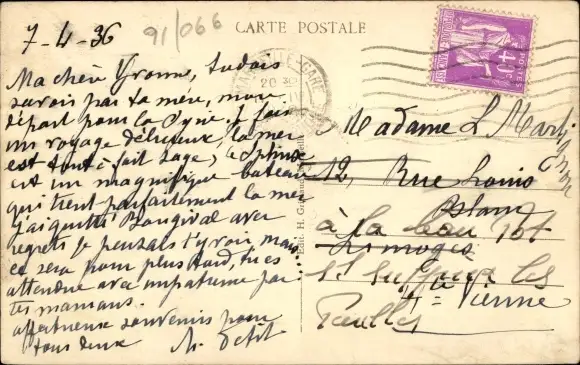 CARTE POSTALE
7-4-36
91/066
Ma chère Yvonne, tu dois
savoir par ta mère, mon
départ pour la Syrie, je fais
un voyage délicieux, la mer
est tout à fait sage, le Sphinx
est un magnifique bateau
qui tient parfaitement la mer
j'ai quitté Bougival avec
regrets je pensais t'y voir, mais
ce sera pour plus tard, tu es
attendue avec impatience par
tes mamans.
affectueux souvenirs pour
tous deux
M. Petit
Edit. H.
POSTES
40c
GARE
20
Madame L Martignon
12, Rue Louis
Blanc
Limoges
à la
Hte Vienne
les